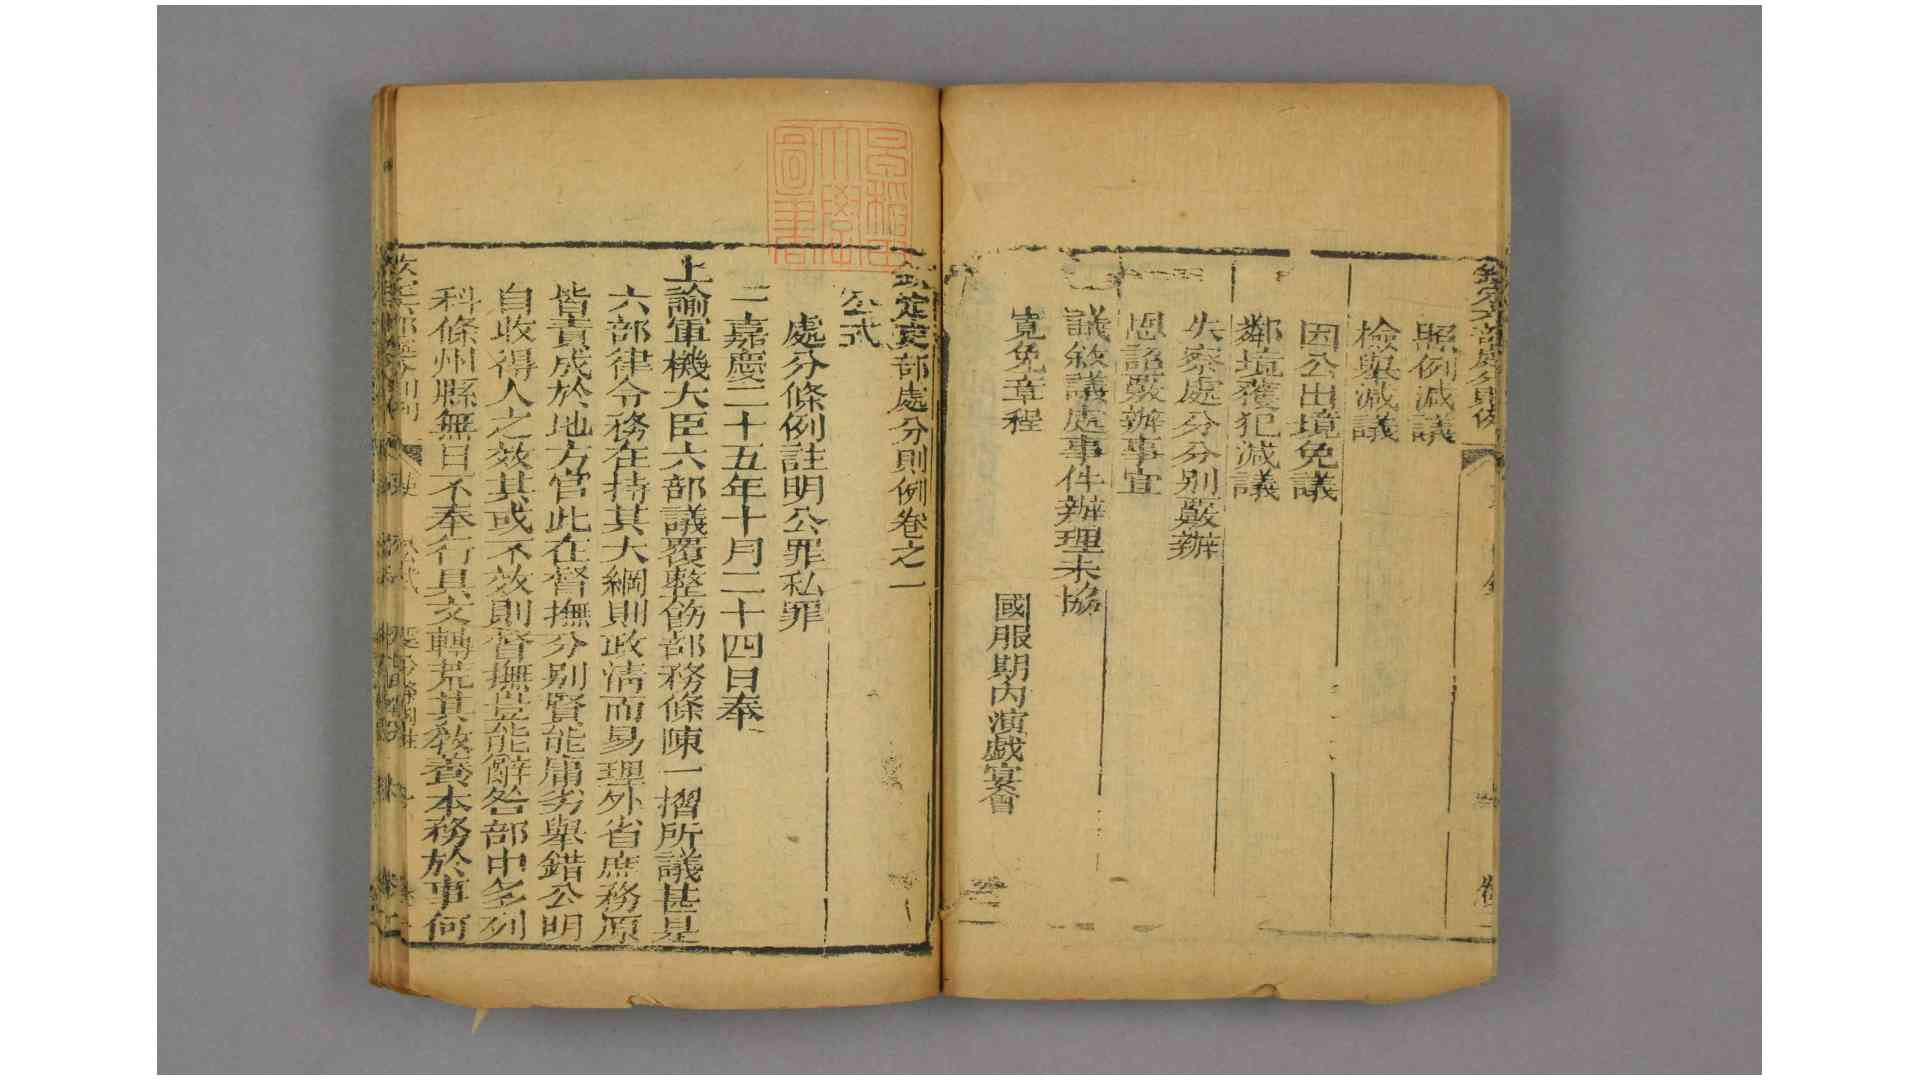 照例減議
檢舉減議
因公出境免議
鄰境獲犯減議
失察處分分別覈辦
恩詔覈辦事宜
議敘議處事件辦理未協
寬免章程
國服期內演戲宴會
欽定吏部處分則例卷之一
公式
處分條例註明公罪私罪
一嘉慶二十五年十月二十四日奉
上諭軍機大臣六部議覆整飭部務條陳一摺所議甚是
六部律令務在持其大綱則政清而易理外省庶務原
皆責成於地方官此在督撫分別賢能庸劣舉錯公明
自收得人之效其或不效則督撫豈能辭咎部中多列
科條州縣無日不奉行具文轉荒其教養本務於事何
早稲田大學圖書